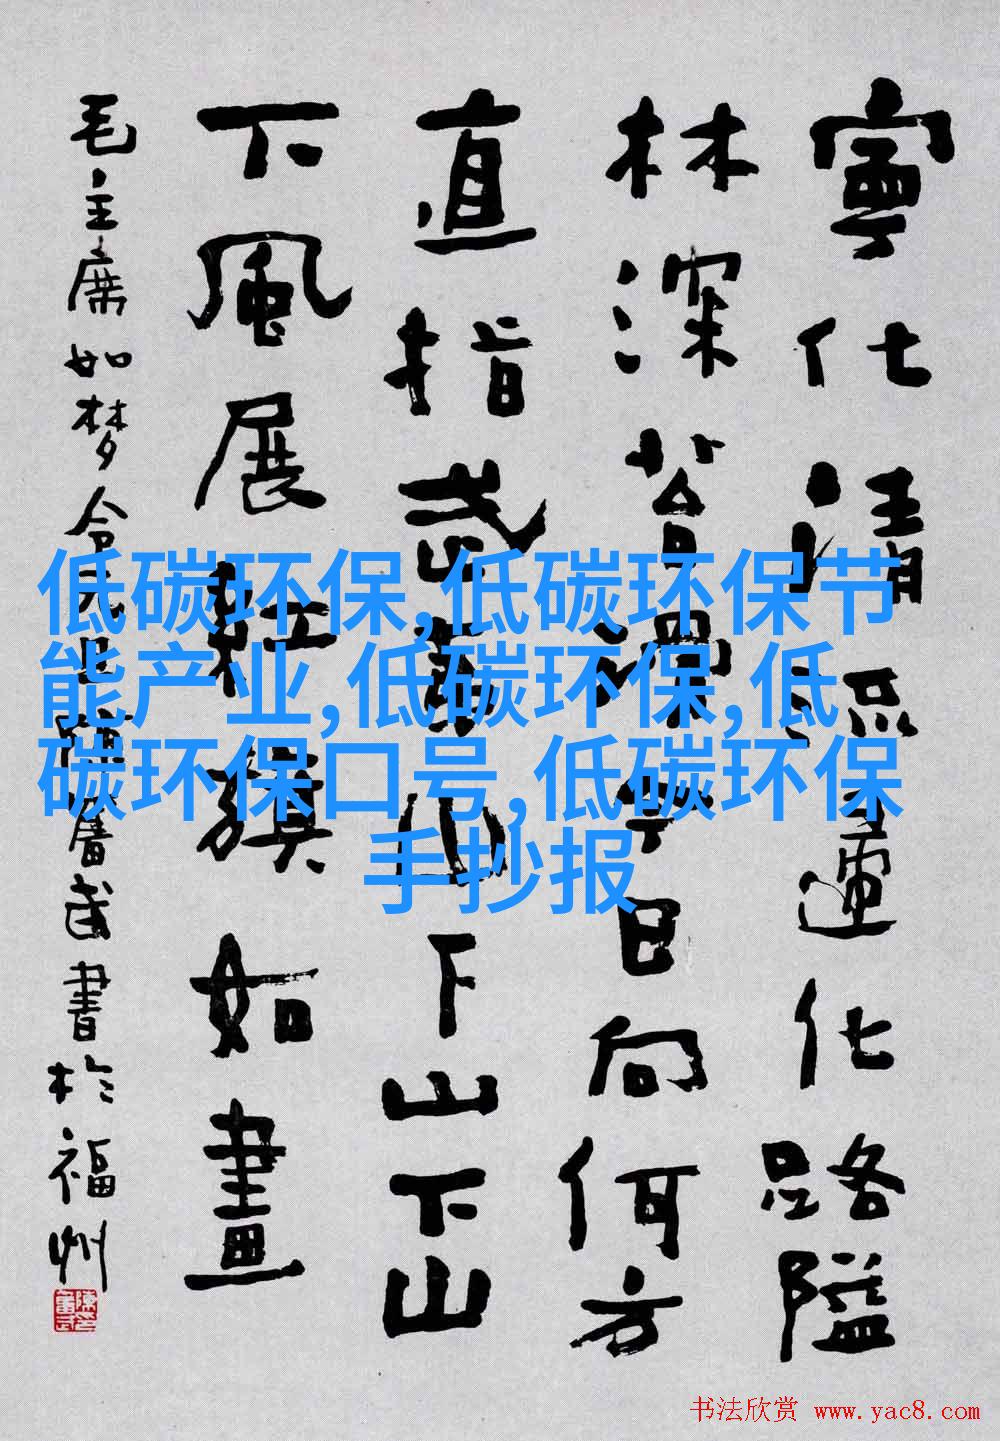 寧化清流化路隘
林深苔滑今日向何方
直指武夷山下山下山
下風展紅旗如畫
毛主席如梦令元旦陳奮武書於福州
低碳环保,低碳环保节
能产业,低碳环保,低
碳环保口号,低碳环保
手抄报
书法欣赏 www.yac8.com